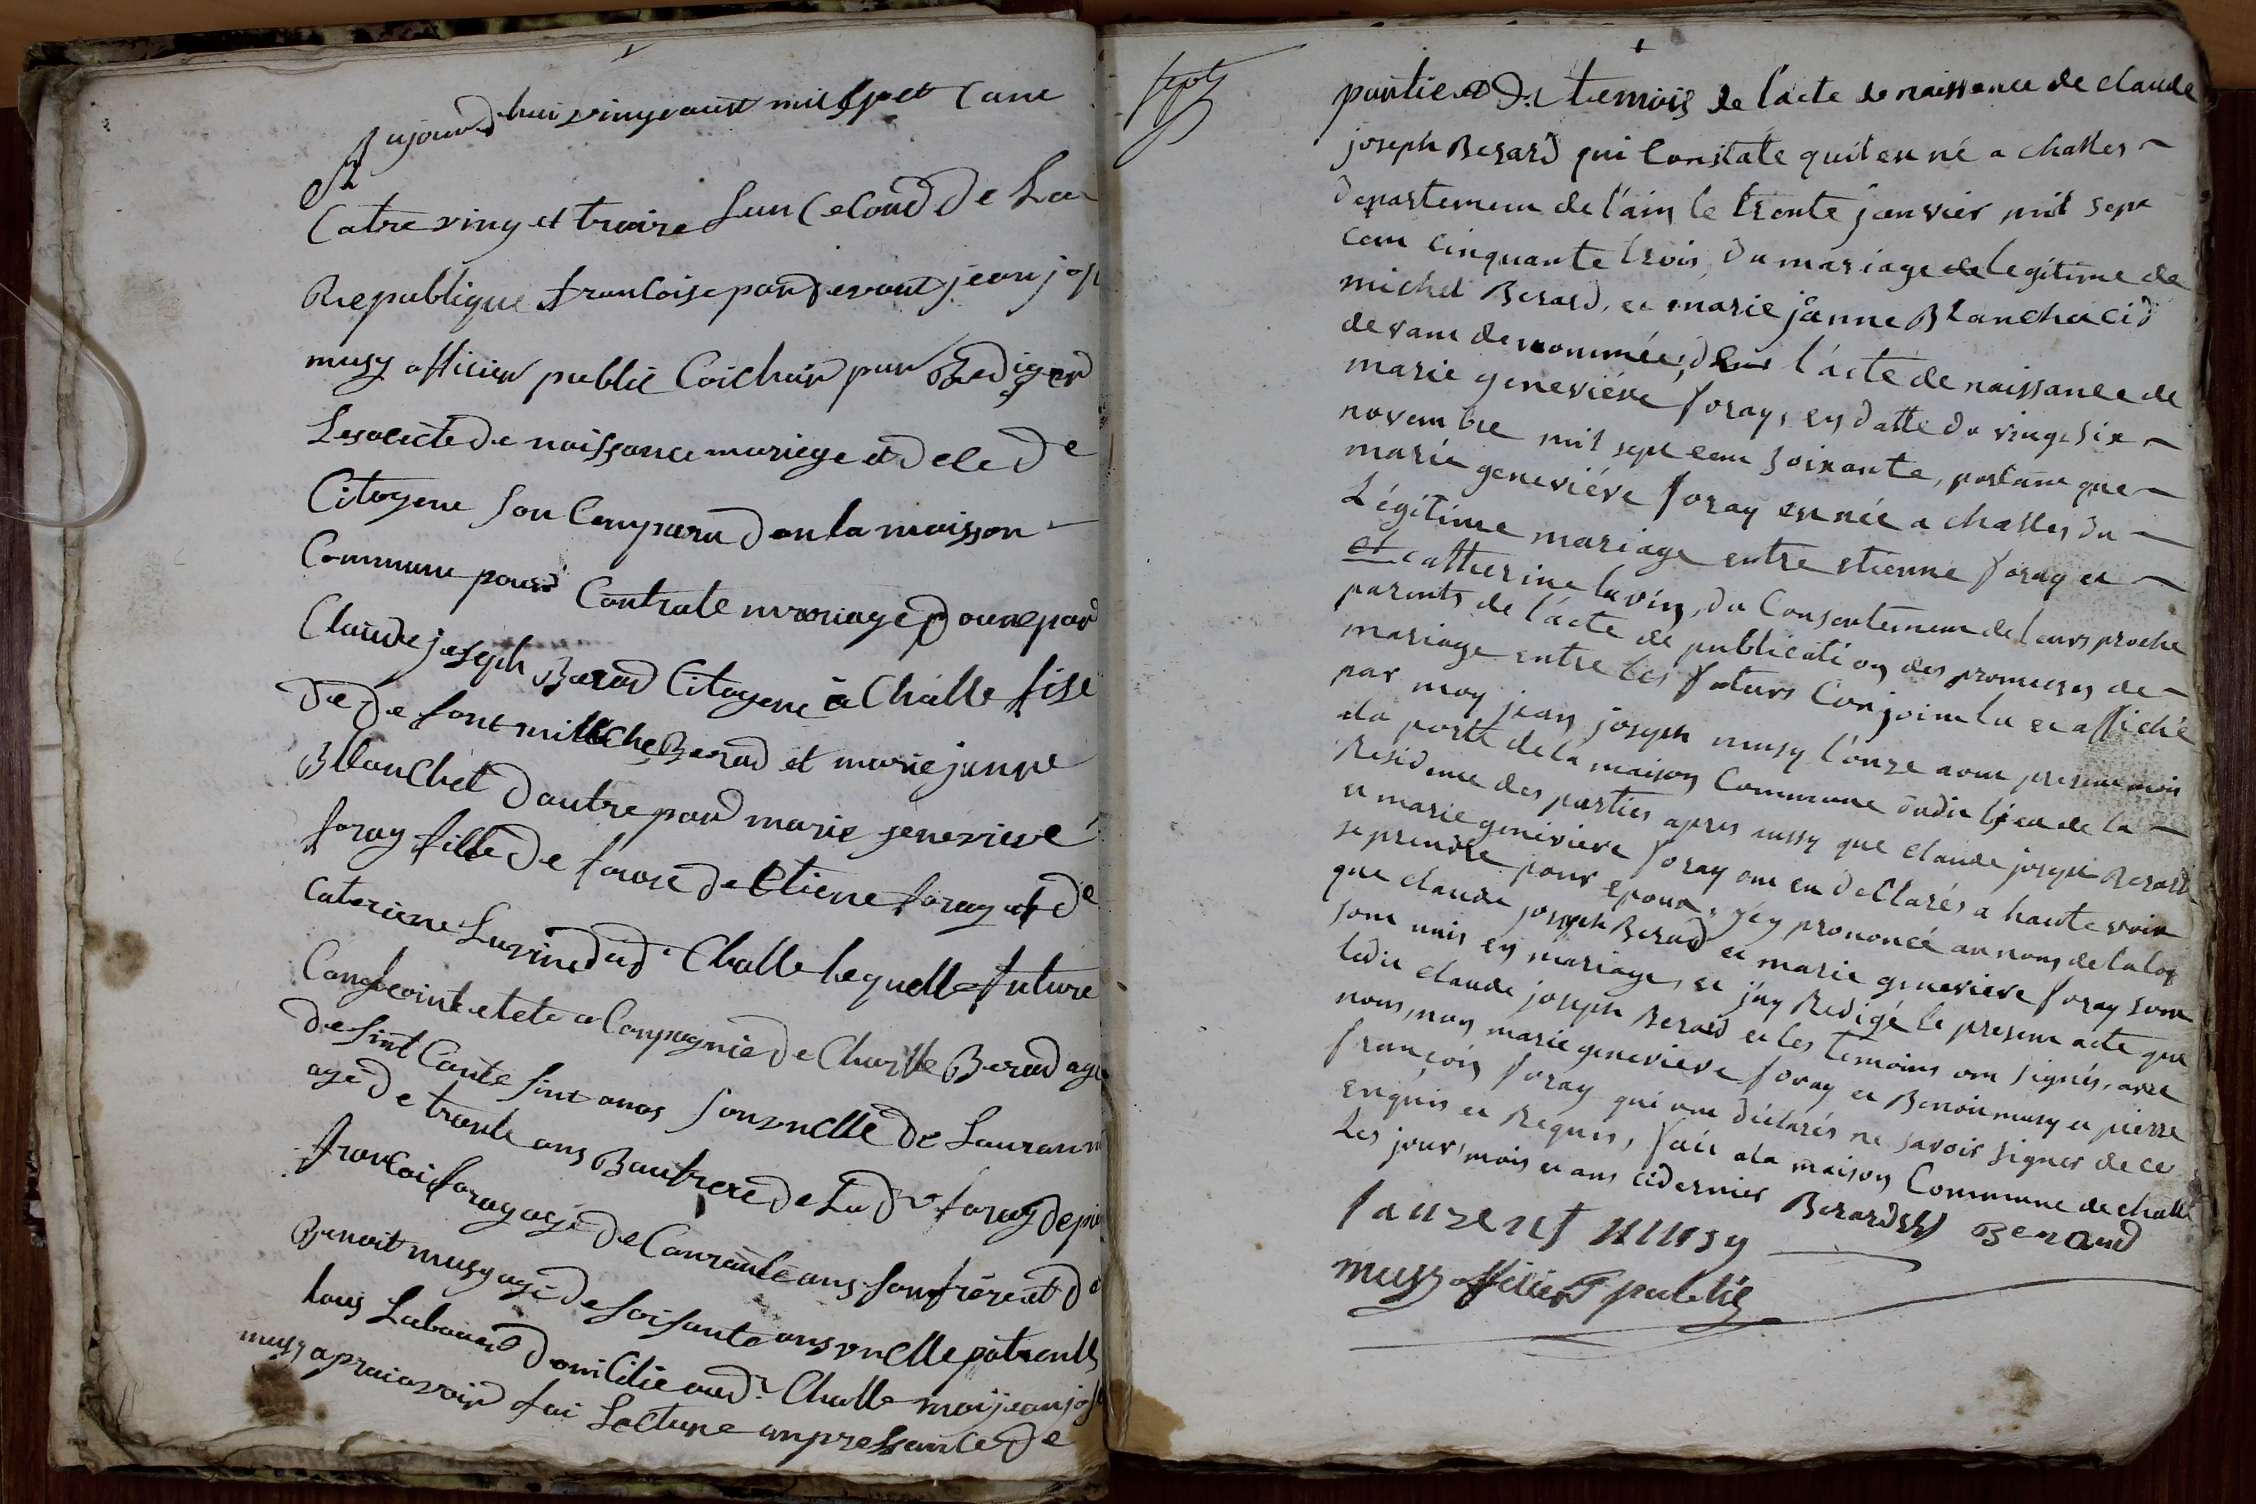 Aujourd'hui vingt aout mil spet Cane
Catre ving et traize Lan Cecond De La
Republique francoise pardevant jean jos
musy officier public Coichair pur Redigerd
Lesacecte De naissance mariege et dece De
Citoyene Son Comparu dan la maisson
Commune pourd Contrate mariage D oune pard
Claude joseph Berard Citoyene a Challe fise
De De font mille che Berard et marie janne
Bllanchet Dautre pard marie jenevieve
foray fille De De Etiene foray et De
Caterine Luvine dud. Challe laquelle future
Conjointe etete a Conpagnie De Charlle Berard age
De Sint Cante Sint anas Son onclle De Lauran m
age De trante ans Baufrere De La d. foray De pie
francoi foray age De Carante ans Son frere et De
Benoit musy age De Soisante ans onclle patrenlle
tous Laboured Domicilie aud. Challe moi jean jos
musy aprai avoir fai Lecture anpressance De
sept
partie et Des temois de l'acte de naissance de claude
joseph Berard qui Constate quil est né a chalLes
departement de l'ain le trente janvier mil sept
cent cinquante trois, du mariage de legitime de
michel Berard, et marie jeanne Blanchet ci d
devant denommée, dans l'acte de naissance de
marie geneviéve foray, en datte du vingt six
novembre mil sept cent soixante, portant que
marie geneviéve foray est née a challes du
Légitime mariage entre etienne foray et
et catherine luvin, du Consentement de leurs proche
parents de l'acte de publication des promesses de
mariage entre les futurs Conjoint lu et affiché
par moy jean joseph musy l'onze aout present mois
a la porte de la maison Commune dudit lieu de la
Residence des parties apres aussy que claude joseph Berard
et marie genevieve foray ont eu declarés a haute voix
se prendre pour epoux, j'ey prononcé au nom de la loy
que claude joseph Berard et marie genevieve foray sont
sont unis en mariage, et j'ay Redigé le present acte que
ledit claude joseph Berard et les temoins ont signés, avec
nous, non marie genevieve foray et Benoit musy et pierre
françois foray qui ont déclarés ne savoir signer de ce
enquis et Requis, fait a la maison Commune de challe
Les jour, mois et ans cidernier Berard Berard
laurent musy
musy officier public